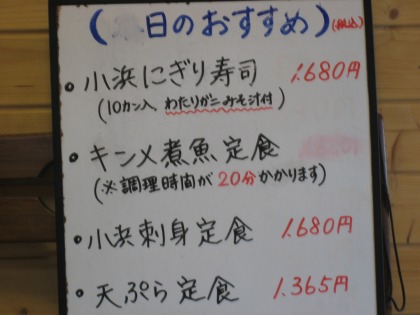 ( 日のおすすめ)(税込)
• 小浜にぎり寿司 1.680円
(10カン入、わたりガニみそ汁付)
• キンメ煮魚定食
(※調理時間が20分かかります)
• 小浜刺身定食 1.680円
• 天ぷら定食 1.365円